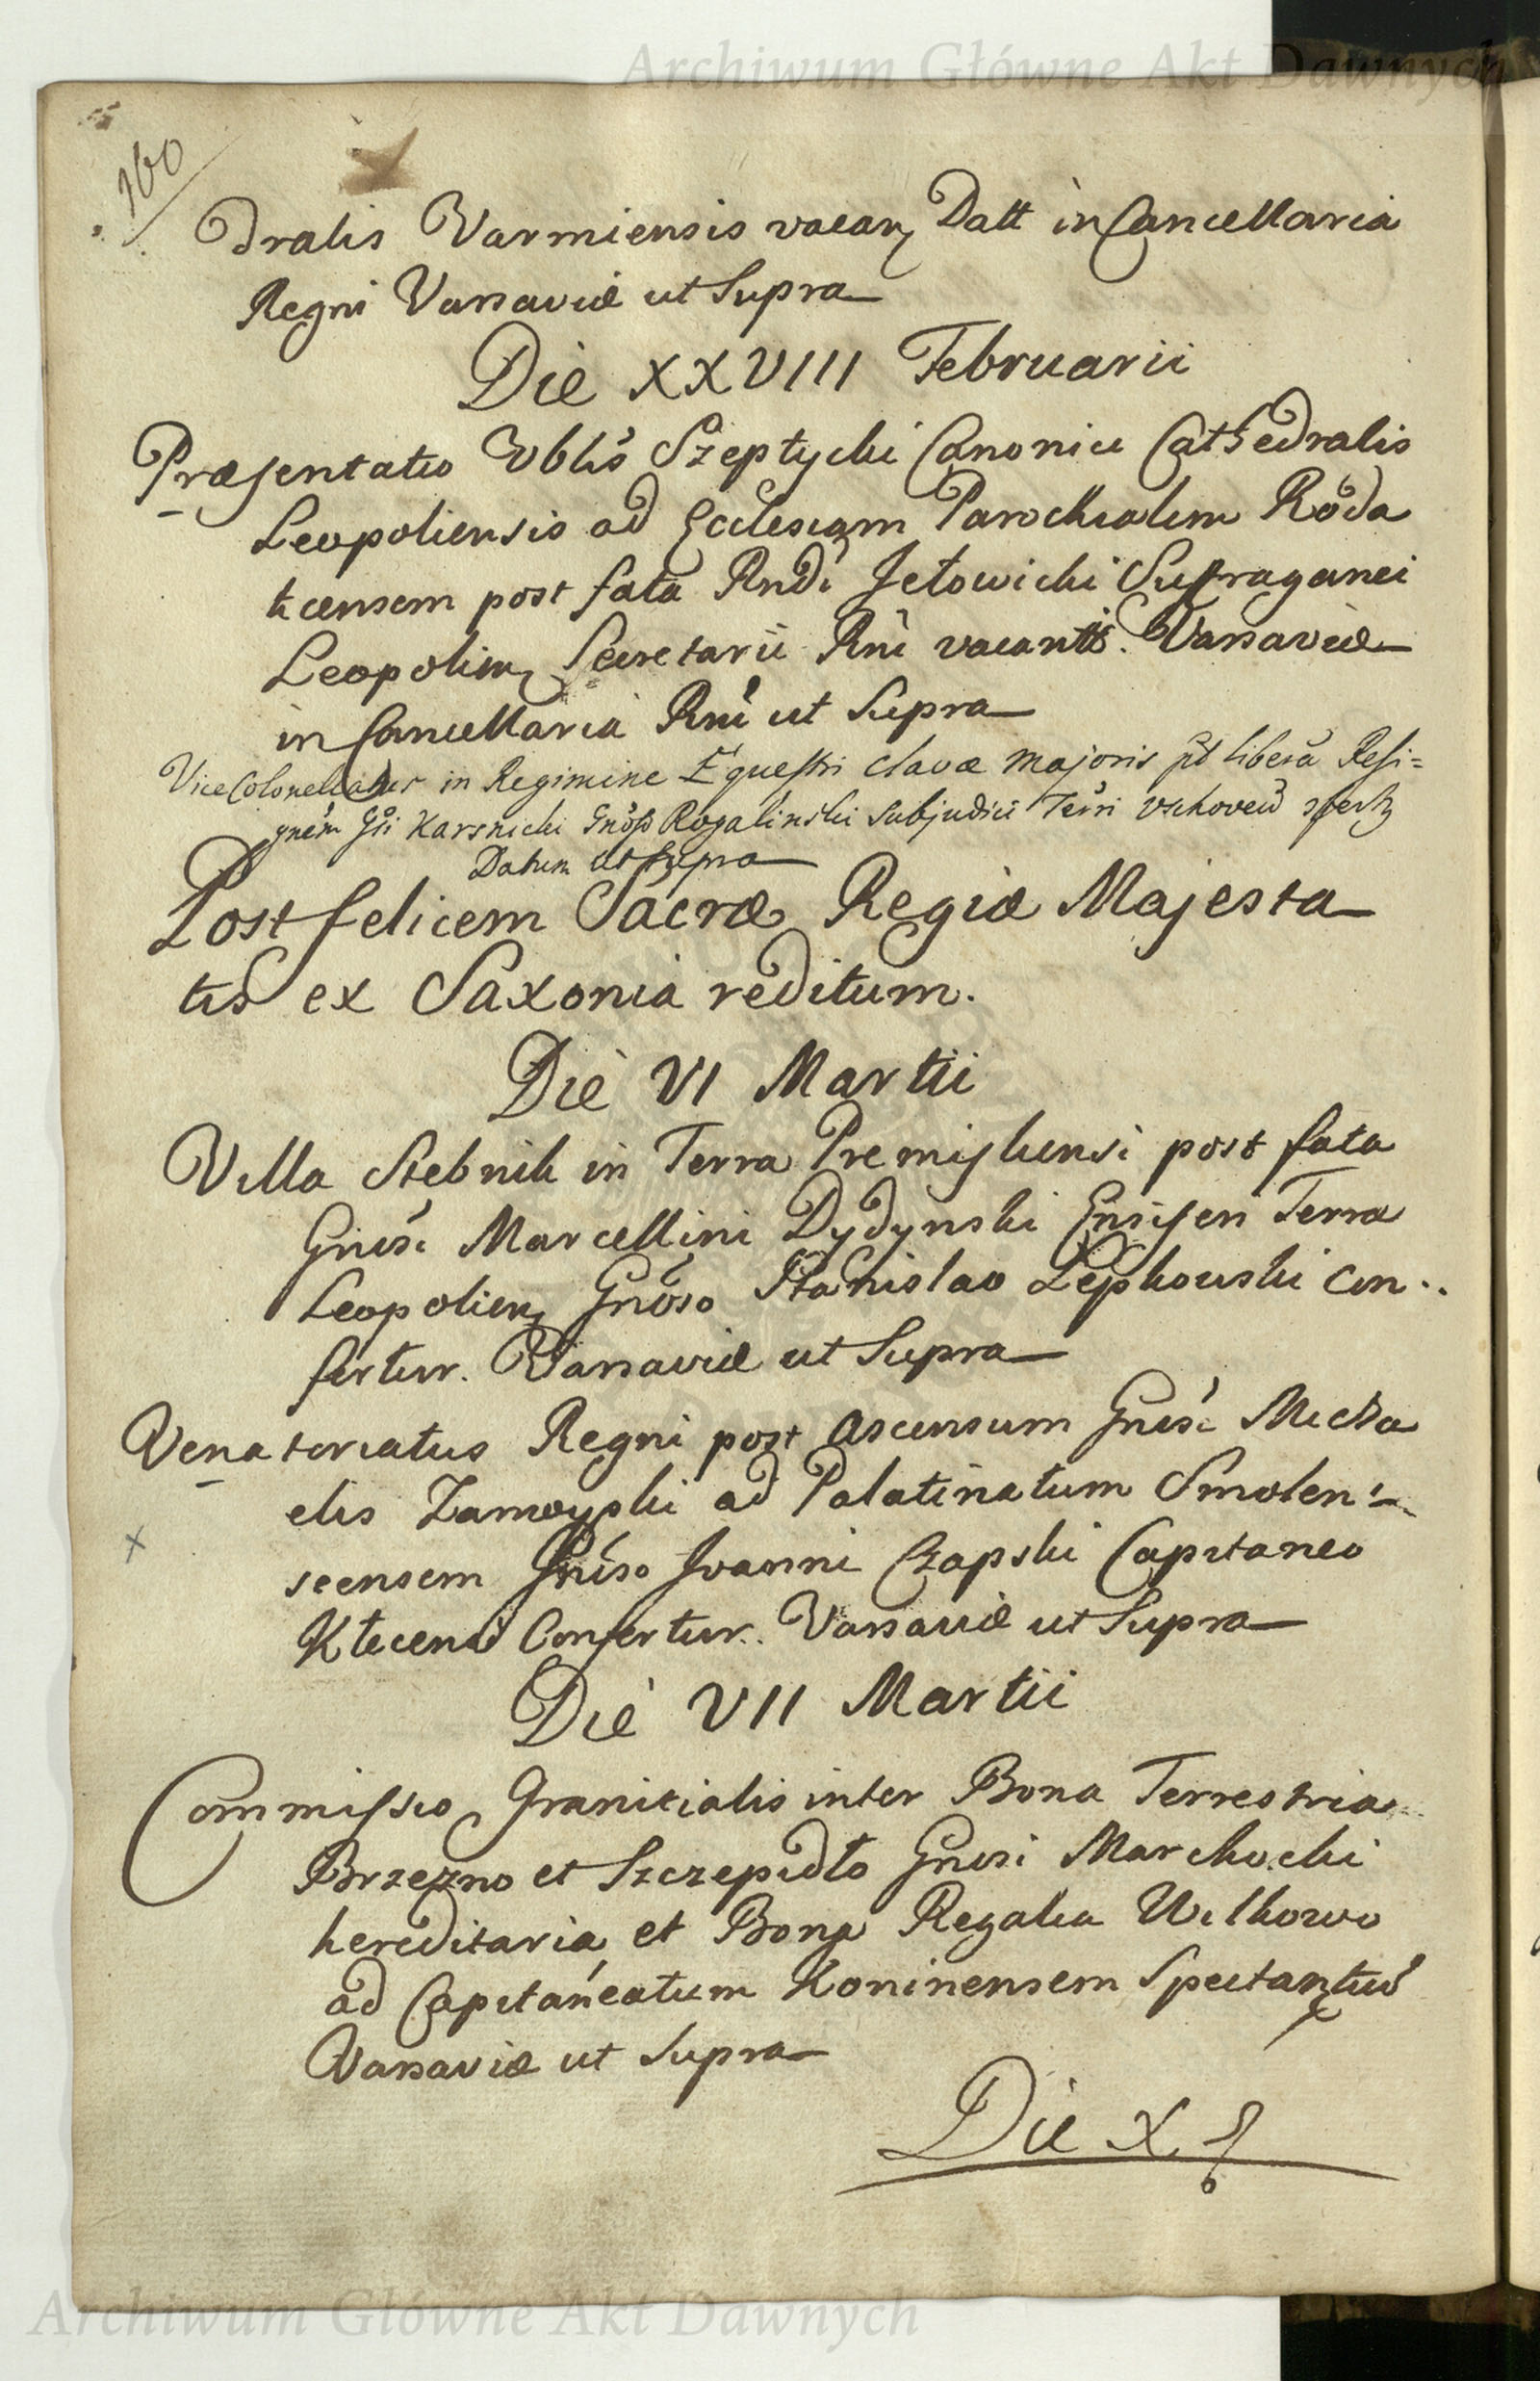 Archiwum Główne Akt Dawnych
160
dralis Varmiensis vacan Datt in Cancellaria
Regni Varsaviæ ut Supra
Die XXVIII Februarii
Præsentatio Vblis Szeptycki Canonici Cathedralis
Leopoliensis ad Ecclesiam Parochialem Roda
ticensem post fata Rndi Jełowicki Sufraganei
Leopolien Secretarii Rni vacantis. Varsaviæ
in Cancellaria Rni ut Supra
ViceColonellatus in Regimine Equestri Clavæ Majoris post liberã Resi=
gnẽm Gsi Karsnicki Gnoso Rogalinski Subjudici Terri Vschoven
Datum ut Supra
Post felicem Sacræ Regiæ Majesta
tis ex Saxonia reditum.
Die VI Martii
Villa Stebnik in Terra Premisliensi post fata
Gnisi Marcellini Dydynski Ensiferi Terræ
Leopolien Gnoso Stanislao Lępkowski con..
fertur. Varsaviæ ut Supra
Venatoriatus Regni post Ascensum Gnisi Micha
elis Zamoyski ad Palatinatum Smolen:
scensem Gniso Joanni Czapski Capitaneo
Klecens Confertur. Varsaviæ ut Supra
Die VII Martii
Commissio Granicialis inter Bona Terrestria
Brzezno et Szczepidło Gnosi Marchocki
hereditaria et Bona Regalia Wilkowo
ad Capitaneatum Koninensem Spectantium
Varsaviæ ut Supra
Die X
Archiwum Główne Akt Dawnych